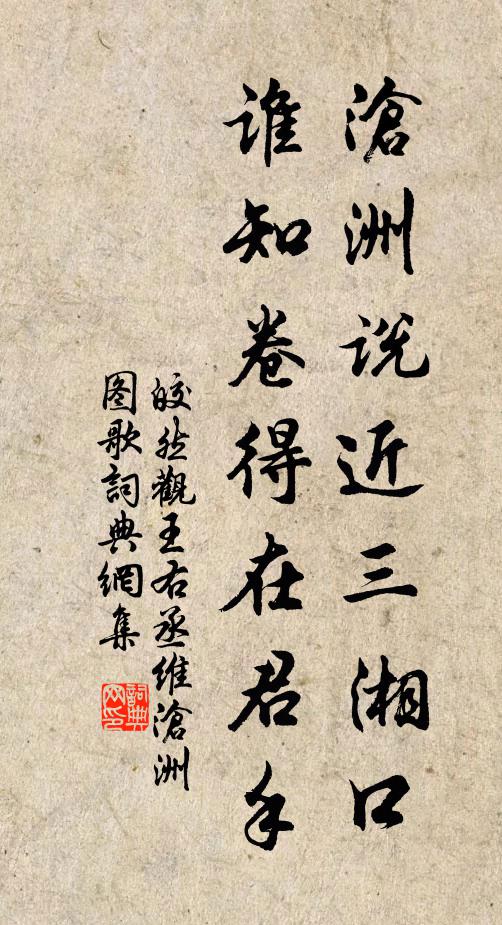 滄洲説近三湘口
谁知卷得在君手
皎然觀王右丞維滄洲
图歌詞典網集
詞典
网印